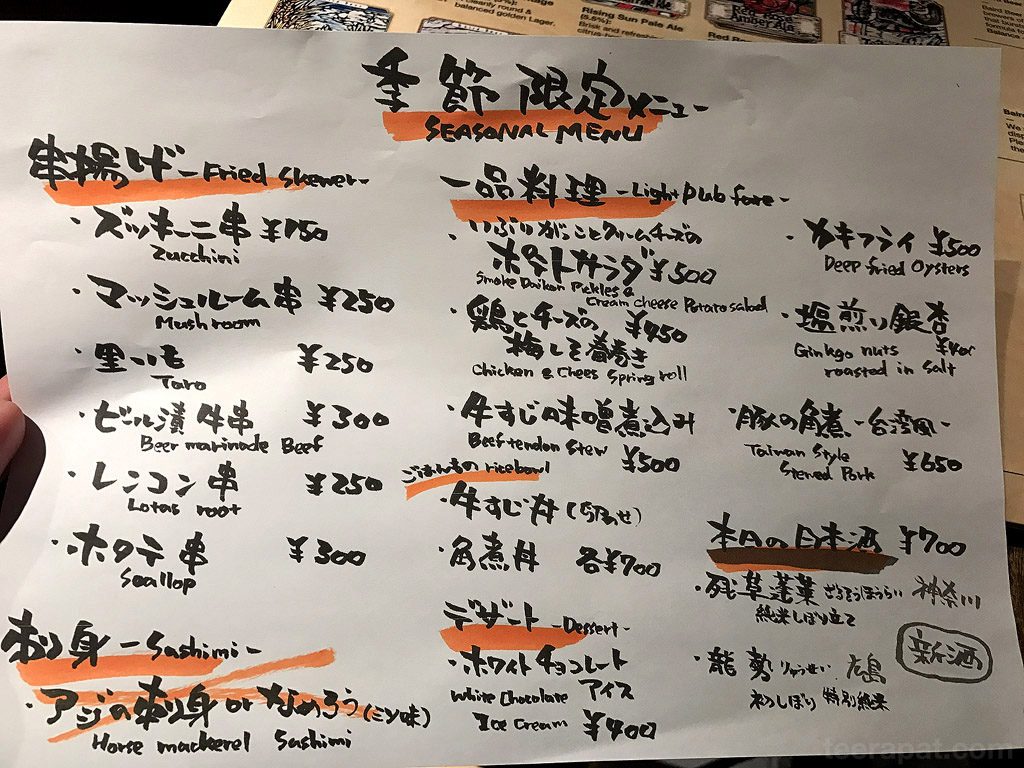 balanced golden Lager.
Rising Sun Pale Ale
季節限定メニュー
SEASONAL MENU
串揚げ -Fried Skewer-
・ズッキーニ串 ¥150
Zucchini
・マッシュルーム串 ¥250
Mushroom
・里いも ¥250
Taro
・ビール漬牛串 ¥300
Beer marinade Beef
・レンコン串 ¥250
Lotas root
・ホタテ串 ¥300
Scallop
刺身 -Sashimi-
・アジの刺身 or なめろう(ミソ味)
Horse mackerel Sashimi
一品料理 -Light Pub fare-
・いぶりがっことクリームチーズの
ポテトサラダ ¥500
Smoke Daikon Pickles &
Cream cheese Potato salad
・鶏とチーズの ¥450
梅しそ春巻き
Chicken & Chees Spring roll
・牛すじ味噌煮込み
Beef tendon Stew ¥500
ごはんもの rice bowl
・牛すじ丼
・角煮丼 各¥700
デザート -Dessert-
・ホワイトチョコレート
White Chocolate アイス
Ice Cream ¥400
・カキフライ ¥500
Deep fried Oysters
・塩煎り銀杏
Ginkgo nuts ¥400
roasted in Salt
・豚の角煮 -台湾風-
Taiwan Style
Stewed Pork ¥650
本日の日本酒 ¥700
・残草蓬莱 ざるそうほうらい 神奈川
純米しぼり立て
・龍勢 りゅうせい 広島
初しぼり 特別純米
新酒
teerapat.com